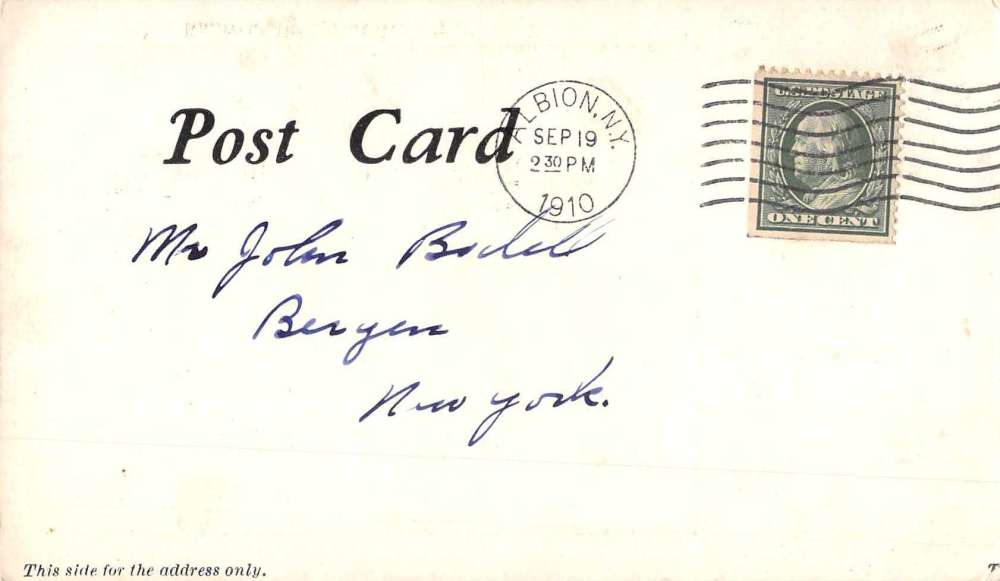 Post Card
ALBION, N.Y.
SEP 19
2 30 PM
1910
U.S. POSTAGE
ONE CENT
Mr John Bodell
Bergen
New York.
This side for the address only.
T